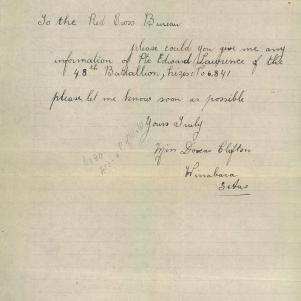 To the Red Cross Bureau
please could you give me any
information of Pte Edward Lawrence of the
48th Battallion, No 6841
please let me know soon as possible
Yours Truly
Miss Clifton
Wirrabara
S Aus